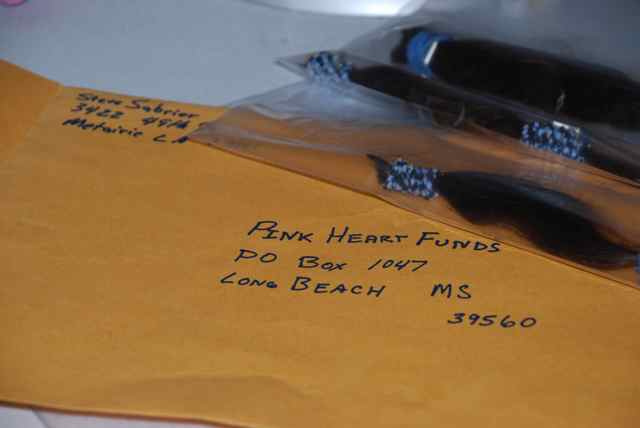 Steve Sabrier
3422 49th
Metairie LA
PINK HEART FUNDS
PO BOX 1047
LONG BEACH MS
39560